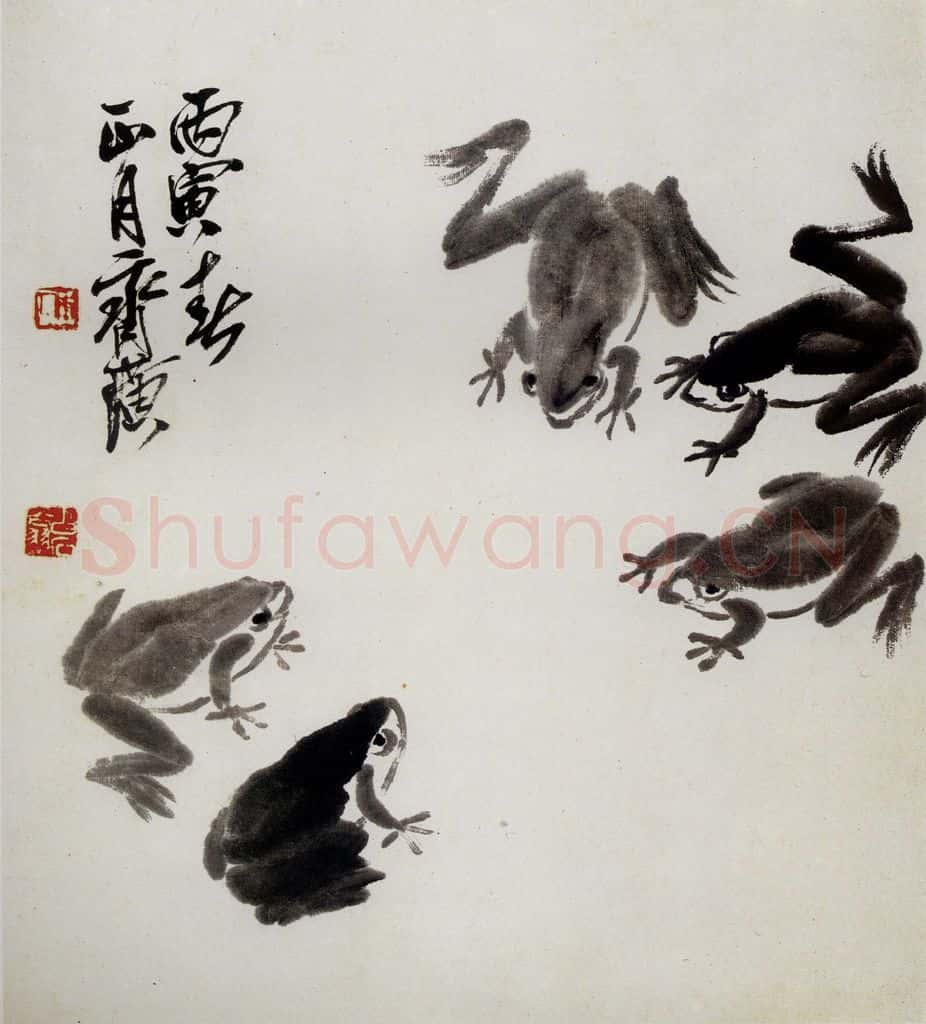 丙寅春
正月齊璜
Shufawang.CN